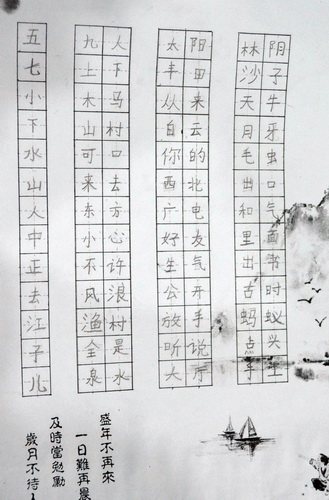 五
七
小
下
水
山
人
中
正
去
江
子
儿
九人
土下
木马
山村
可口
来去
东方
小心
不许
风浪
渔村
全是
泉水
太阳
丰田
从来
白云
你的
西北
广电
好友
生气
公开
放手
听说
大厅
林阴
沙子
天牛
月牙
毛虫
出口
和气
里面
出书
古时
蚂蚁
点
手
盛年不再來
一日難再晨
及時當勉勵
歲月不待人